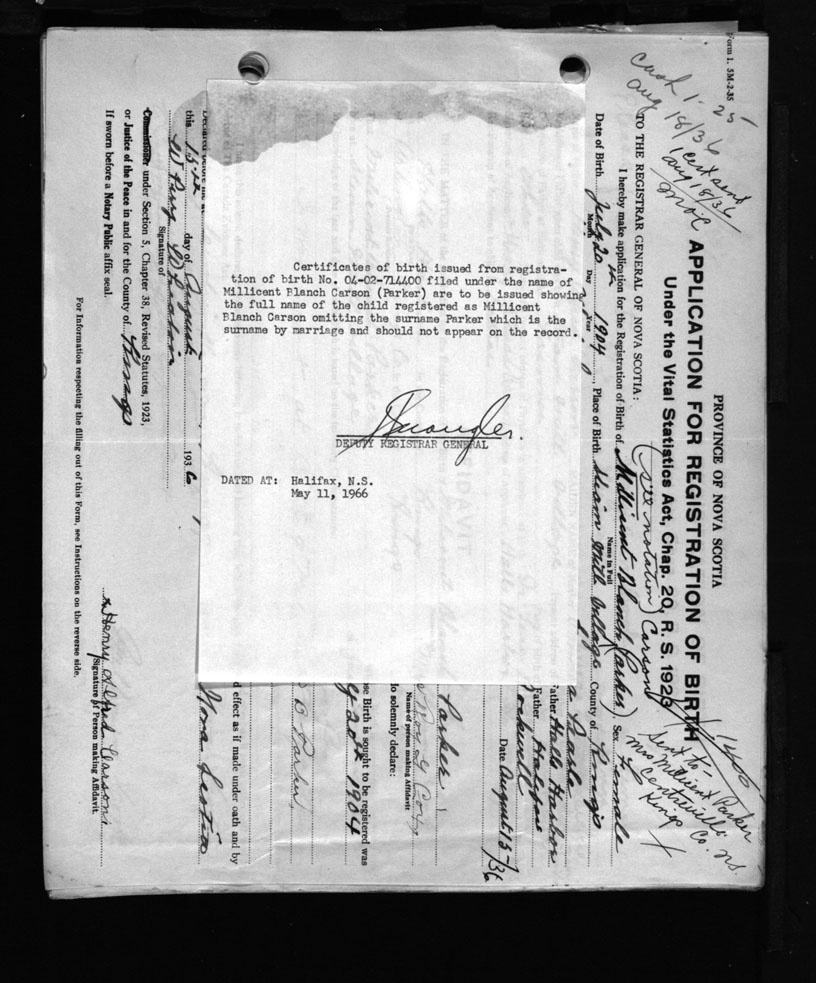 Certificates of birth issued from registra-
tion of birth No. 04-02-714400 filed under the name of
Millicent Blanch Carson (Parker) are to be issued showing
the full name of the child registered as Millicent
Blanch Carson omitting the surname Parker which is the
surname by marriage and should not appear on the record.
DEPUTY REGISTRAR GENERAL
DATED AT: Halifax, N.S.
May 11, 1966
Form 1. 5M-2-35
Cash 1.25
Aug 18/36
Cert sent
Aug 18/36
PROVINCE OF NOVA SCOTIA
APPLICATION FOR REGISTRATION OF BIRTH
Under the Vital Statistics Act, Chap. 20, R. S. 1923
Sent to
Mrs Millicent Parker
Centreville
Kings Co. N.S.
TO THE REGISTRAR GENERAL OF NOVA SCOTIA:
(see notation) Carson
I hereby make application for the Registration of Birth of Millicent Blanch (Parker) Sex Female
Name in Full
Date of Birth July 20th 1904, Place of Birth Village County of Kings
Month Day Year
Pearle
Father Halls Harbor
Father Halifax
Rockwell
Date August 15/36
Parker
Name of person making Affidavit
do solemnly declare:
ose Birth is sought to be registered was
20th 1904
D Parker
d effect as if made under oath and by
Declared before me at
Nova Scotia
this 15th day of August 1936
Signature of
Commissioner under Section 5, Chapter 38, Revised Statutes, 1923,
or Justice of the Peace in and for the County of Kings
If sworn before a Notary Public affix seal.
Henry Alfred Carson
(Signature of Person making Affidavit.
For Information respecting the filling out of this Form, see Instructions on the reverse side.